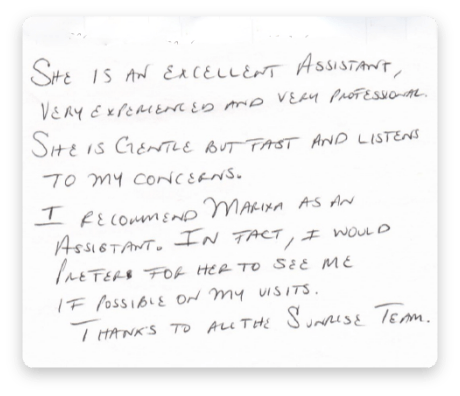 SHE IS AN EXCELLENT ASSISTANT,
VERY EXPERIENCED AND VERY PROFESSIONAL.
SHE IS GENTLE BUT FAST AND LISTENS
TO MY CONCERNS.
I RECOMMEND MARIXA AS AN
ASSISTANT. IN FACT, I WOULD
PREFER FOR HER TO SEE ME
IF POSSIBLE ON MY VISITS.
THANKS TO ALL THE SUNRISE TEAM.